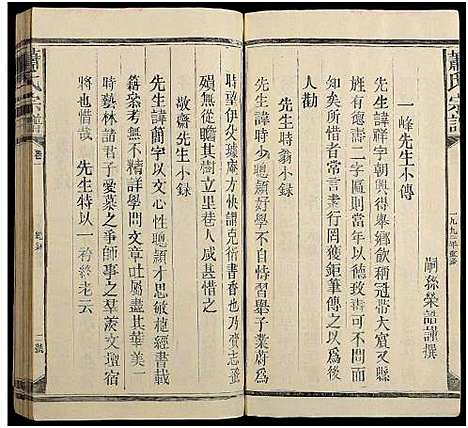 蕭氏宗譜
嗣孫榮誥謹撰
一峰先生小傳
先生諱祥字朝興得舉鄉飲稱冠帶大賓又縣
姓有德壽二字匾則當年不以德政壽可不問
所可惜者常言則罔獲鉅筆傳之以爲後
人勸
先生時翁小錄
先生諱時少聰頴好學不自恃習舉子業蔚爲
時望伊尖璩庵方快謂克術書香也乃賫志遽
殞無從瞻其樹立里巷人咸甚惜之
敬齋先生小録
先生諱蘭字以文心性聰頴才思敏穠經書載
籍案考無不精詳學問文章吐屬盡其華美一
時藝林諸君子愛慕之爭師事之羣羨文壇宿
將也惜哉　先生特以一衿終老云
蕭氏宗譜
卷
二號